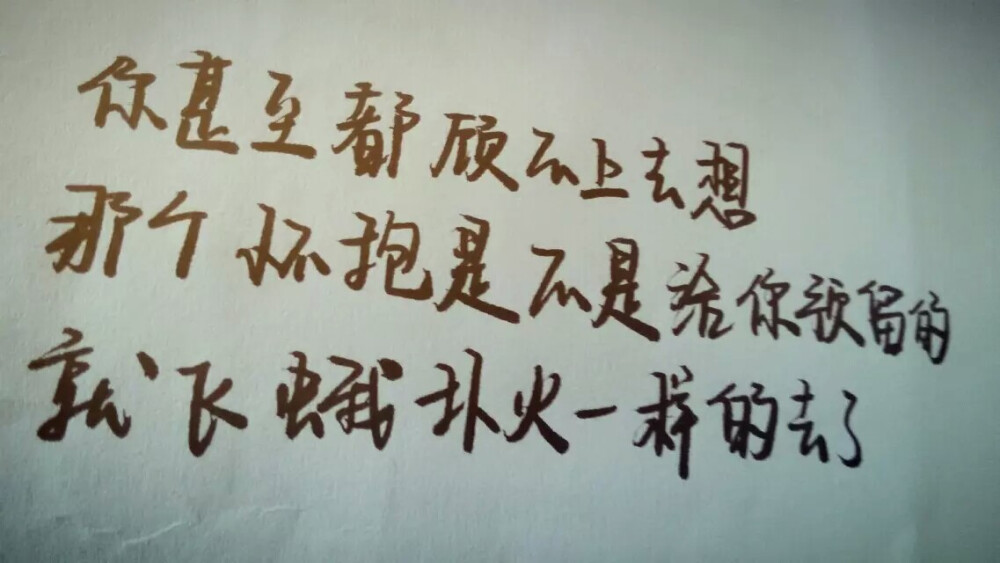 你甚至都顾不上去想
那个怀抱是不是给你预留的
就飞蛾扑火一样的去了